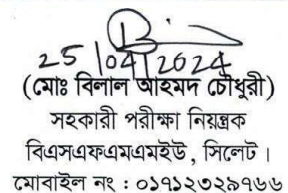 25/04/2024
(মোঃ বিলাল আহমদ চৌধুরী)
সহকারী পরীক্ষা নিয়ন্ত্রক
বিএসএফএমএমইউ, সিলেট।
মোবাইল নং : ০১৭১২৩২৯৭৬৬